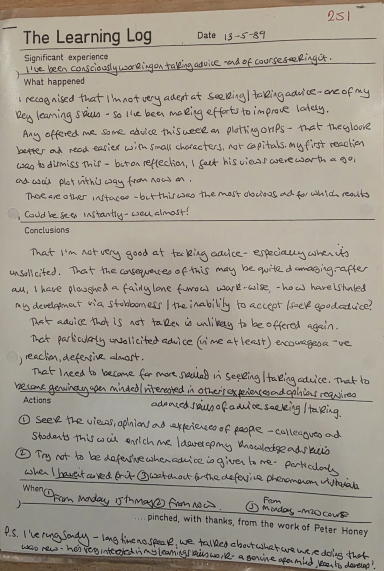 251
The Learning Log
Date 13-5-89
Significant experience
I've been consciously working on taking advice - and of course seeking it.
What happened
I recognised that I'm not very adept at seeking/taking advice - one of my
key learning skills - so I've been making efforts to improve lately.
Any offered me some advice this week on plotting - that they look
better and read easier with small characters, not capitals. My first reaction
was to dismiss this - but on reflection, I felt his views were worth a go,
and will plot in this way from now on.
There are other instances - but this was the most obvious and for which results
could be seen instantly - well almost!
Conclusions
That I'm not very good at taking advice - especially when its
unsolicited. That the consequences of this may be quite damaging - after
all, I have ploughed a fairly lone furrow work-wise - how have I stunted
my development via stubborness/the inability to accept/seek good advice?
That advice that is not taken is unlikely to be offered again.
That particularly unsolicited advice (in me at least) encourages a -ve
reaction, defensive almost.
That I need to become far more skilled in seeking/taking advice. That to
become genuinely open minded/interested in others experiences and opinions requires
advanced skills of advice seeking/taking.
Actions
① Seek the views, opinions and experiences of people - colleagues and
students this will enrich me/develop my knowledge and skills
② Try not to be defensive when advice is given to me - particularly
when I haven't asked for it - ③ watch out for the defensive phenomenon
When
① From Monday 15th May ② From now ③ From Monday -
....pinched, with thanks, from the work of Peter Honey
P.S. I've rung Sandy - long time no speak, we talked about what we were doing that
was new - he's very interested in my learning skills work - a genuine open mind, keen to develop!